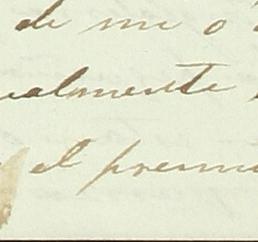 de me o
ualmente
el premi